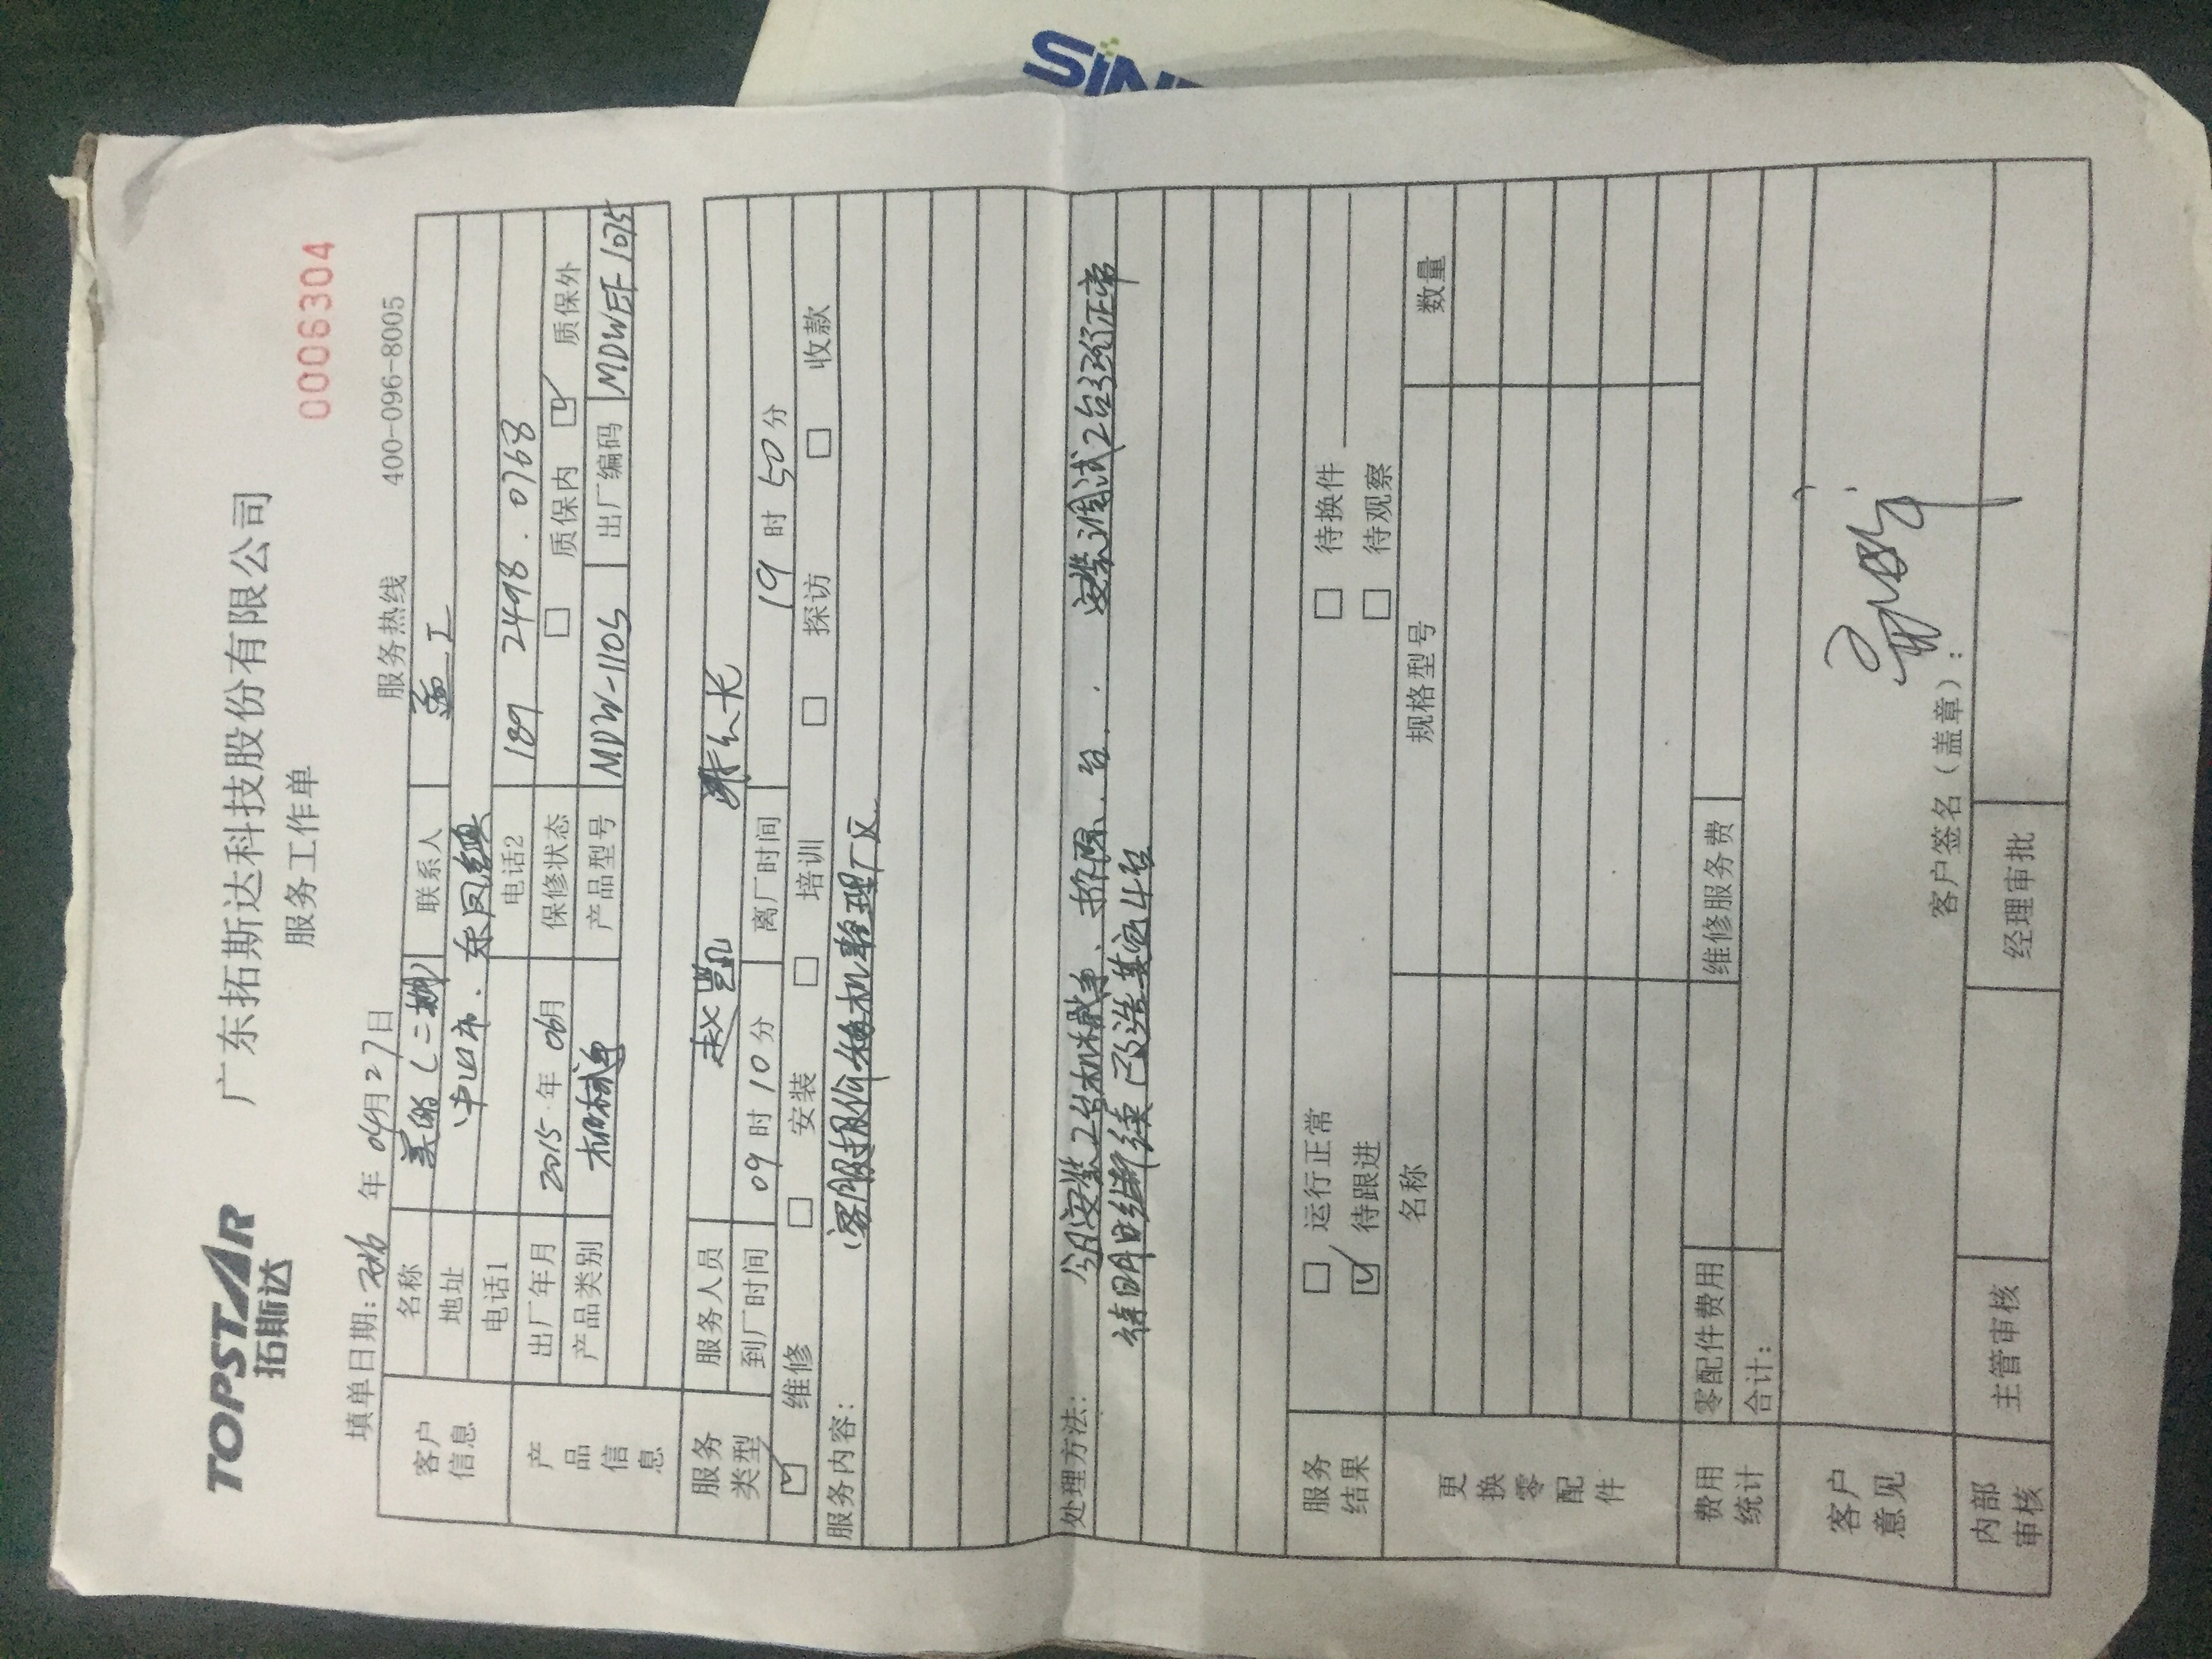 SIN
TOPSTAR
拓斯达
广东拓斯达科技股份有限公司
服务工作单
0006304
填单日期: 2016 年 04月27日 服务热线 400-096-8005
客户信息 名称 美的(二期) 联系人 孟工
地址 中山市.东凤镇
电话1 电话2 189 2498.0768
产品信息 出厂年月 2015年 06月 保修状态 质保内 质保外
产品类别 机械手 产品型号 MDW-110S 出厂编码 MDWEF1075
服务类型 服务人员 赵凯
到厂时间 09时10分 离厂时间 19时50分
维修 安装 培训 探访 收款
服务内容:
客服报价 移机整理厂区
处理方法: 今日安装2台机械手、拆除 台. 安装调试2台 运行正常
待明日继续 改造其页4台
服务结果 运行正常 待换件
待跟进 待观察
更换零配件 名称 规格型号 数量
费用统计 零配件费用 维修服务费
合计:
客户意见
客户签名(盖章):
内部审核 主管审核 经理审批